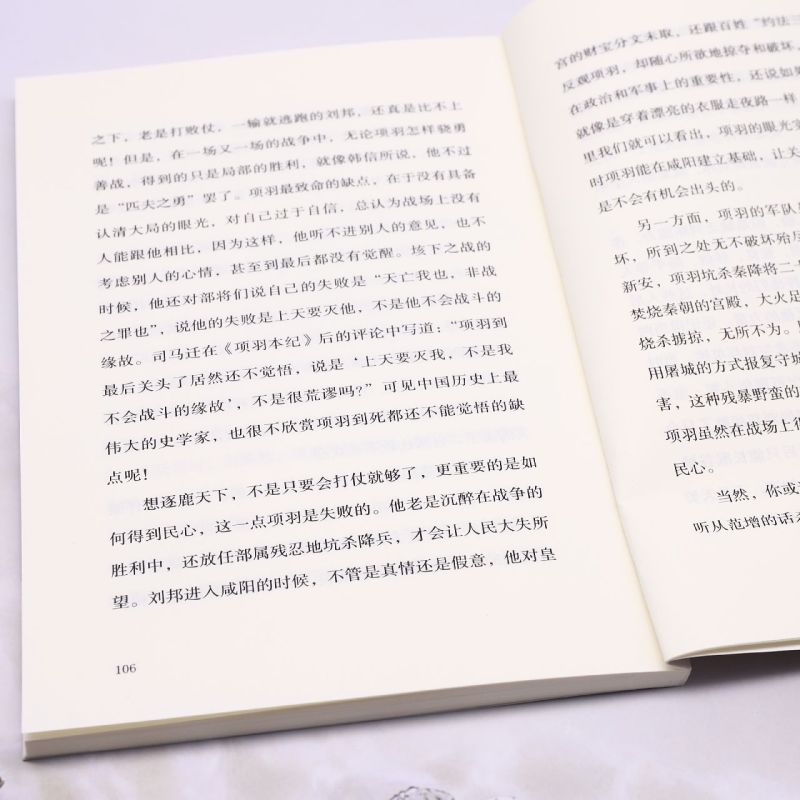 之下，老是打败仗，一输就逃跑的刘邦，还真是比不上
呢！但是，在一场又一场的战争中，无论项羽怎样骁勇
善战，得到的只是局部的胜利，就像韩信所说，他不过
是“匹夫之勇”罢了。项羽最致命的缺点，在于没有具备
认清大局的眼光，对自己过于自信，总认为战场上没有
人能跟他相比，因为这样，他听不进别人的意见，也不
考虑别人的心情，甚至到最后都没有觉醒。垓下之战的
时候，他还对部将们说自己的失败是“天亡我也，非战
之罪也”，说他的失败是上天要灭他，不是他不会战斗的
缘故。司马迁在《项羽本纪》后的评论中写道：“项羽到
最后关头了居然还不觉悟，说是‘上天要灭我，不是我
不会战斗的缘故’，不是很荒谬吗？”可见中国历史上最
伟大的史学家，也很不欣赏项羽到死都还不能觉悟的缺
点呢！
想逐鹿天下，不是只要会打仗就够了，更重要的是如
何得到民心，这一点项羽是失败的。他老是沉醉在战争的
胜利中，还放任部属残忍地坑杀降兵，才会让人民大失所
望。刘邦进入咸阳的时候，不管是真情还是假意，他对皇
106
宫的财宝分文未取，还跟百姓“约法三
反观项羽，却随心所欲地掠夺和破坏，
在政治和军事上的重要性，还说如果
就像是穿着漂亮的衣服走夜路一样
里我们就可以看出，项羽的眼光实
时项羽能在咸阳建立基础，让关
是不会有机会出头的。
另一方面，项羽的军队
坏，所到之处无不破坏殆尽
新安，项羽坑杀秦降将二十
焚烧秦朝的宫殿，大火足
烧杀掳掠，无所不为。
用屠城的方式报复守城
害，这种残暴野蛮的
项羽虽然在战场上很
民心。
当然，你或
听从范增的话